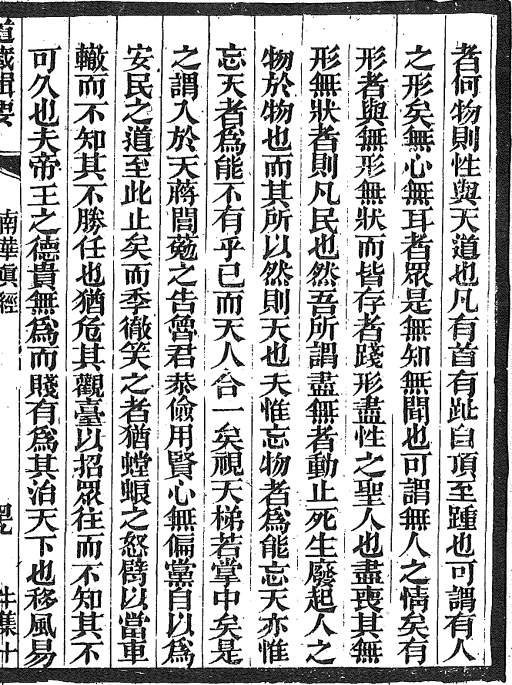 者何物則性與天道也凡有首有趾自頂至踵也可謂有人
之形矣無心無耳者眾是無知無聞也可謂無人之情矣有
形者與無形無狀而皆存者踐形盡性之聖人也盡喪其無
形無狀者則凡民也然吾所謂盡無者動止死生廢起人之
物於物也而其所以然則天也夫惟忘物者為能忘天亦惟
忘天者為能不有乎己而天人合一矣視天梯若掌中矣是
之謂入於天蔣閭葂之告魯君恭儉用賢心無偏黨自以為
安民之道至此止矣而季徹笑之者猶螳蜋之怒臂以當車
轍而不知其不勝任也猶危其觀臺以招眾往而不知其不
可久也夫帝王之德貴無為而賤有為其治天下也移風易
道藏輯要
南華真經
牛集十